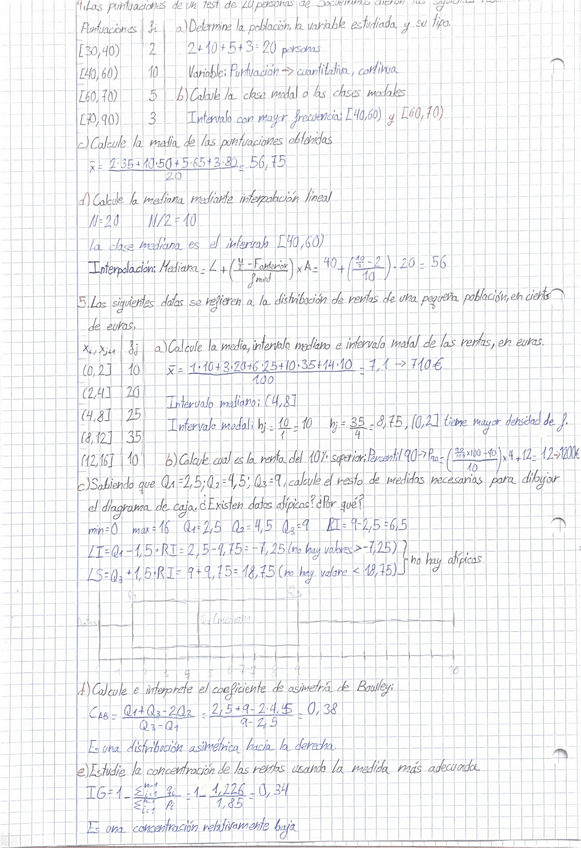 4. Las puntuaciones de un test de 20 personas de
Puntuaciones fi a) Determine la población, la variable estudiada y su tipo.
[30,40) 2 2+10+5+3=20 personas
[40,60) 10 Variable: Puntuación → cuantitativa, continua
[60,70) 5 b) Calcule la clase modal o las clases modales
[70,90) 3 Intervalo con mayor frecuencia: [40,60) y [60,70)
c) Calcule la media de las puntuaciones obtenidas
x̄ = (2·35+10·50+5·65+3·80)/20 = 56,75
d) Calcule la mediana mediante interpolación lineal
N=20 N/2=10
La clase mediana es el intervalo [40,60)
Interpolación: Mediana = L + ((N/2 - Fanterior)/fmed) × A = 40 + ((10-2)/10) · 20 = 56
5. Los siguientes datos se refieren a la distribución de rentas de una pequeña población, en cientos
de euros.
xi, xi+1 fi a) Calcule la media, intervalo mediano e intervalo modal de las rentas, en euros.
(0,2] 10 x̄ = (1·10+3·20+6·25+10·35+14·10)/100 = 7,1 → 710€
(2,4] 20
(4,8] 25 Intervalo mediano: (4,8]
(8,12] 35 Intervalo modal: hj = 10/1 = 10 hj = 35/4 = 8,75, (0,2] tiene mayor densidad de f.
(12,16] 10 b) Calcule cual es la renta del 10% superior: Percentil 90 → P90 = ×4+12= 12→1200€
c) Sabiendo que Q1=2,5; Q2=4,5; Q3=9, calcule el resto de medidas necesarias para dibujar
el diagrama de caja. ¿Existen datos atípicos? ¿Por qué?
min=0 max=16 Q1=2,5 Q2=4,5 Q3=9 RI=9-2,5=6,5
LI=Q1-1,5·RI=2,5-9,75=-7,25 (no hay valores > -7,25)
LS=Q3+1,5·RI=9+9,75=18,75 (no hay valore < 18,75) } no hay atípicos
d) Calcule e interprete el coeficiente de asimetría de Bowley:
CAB = (Q1+Q3-2Q2)/(Q3-Q1) = (2,5+9-2·4,5)/(9-2,5) = 0,38
Es una distribución asimétrica hacia la derecha.
e) Estudie la concentración de las rentas usando la medida más adecuada.
IG = 1 - (Σ qi)/(Σ Pi) = 1 - 1,226/1,85 = 0,34
Es una concentración relativamente baja